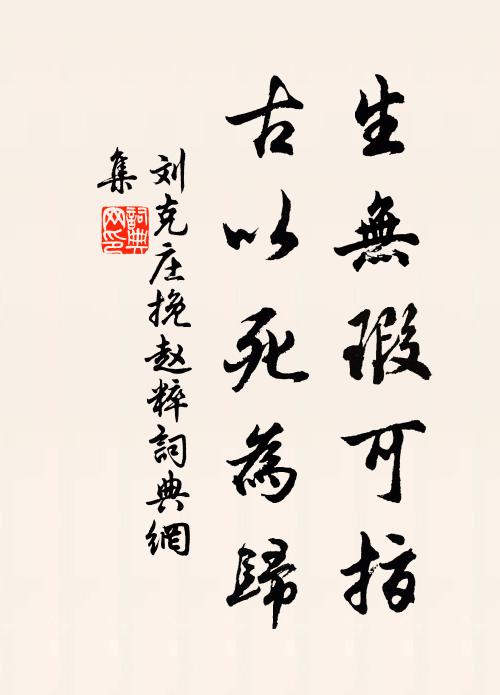 生無瑕可指
古以死為歸
刘克庄挽赵粹詞典網
集
詞典网印